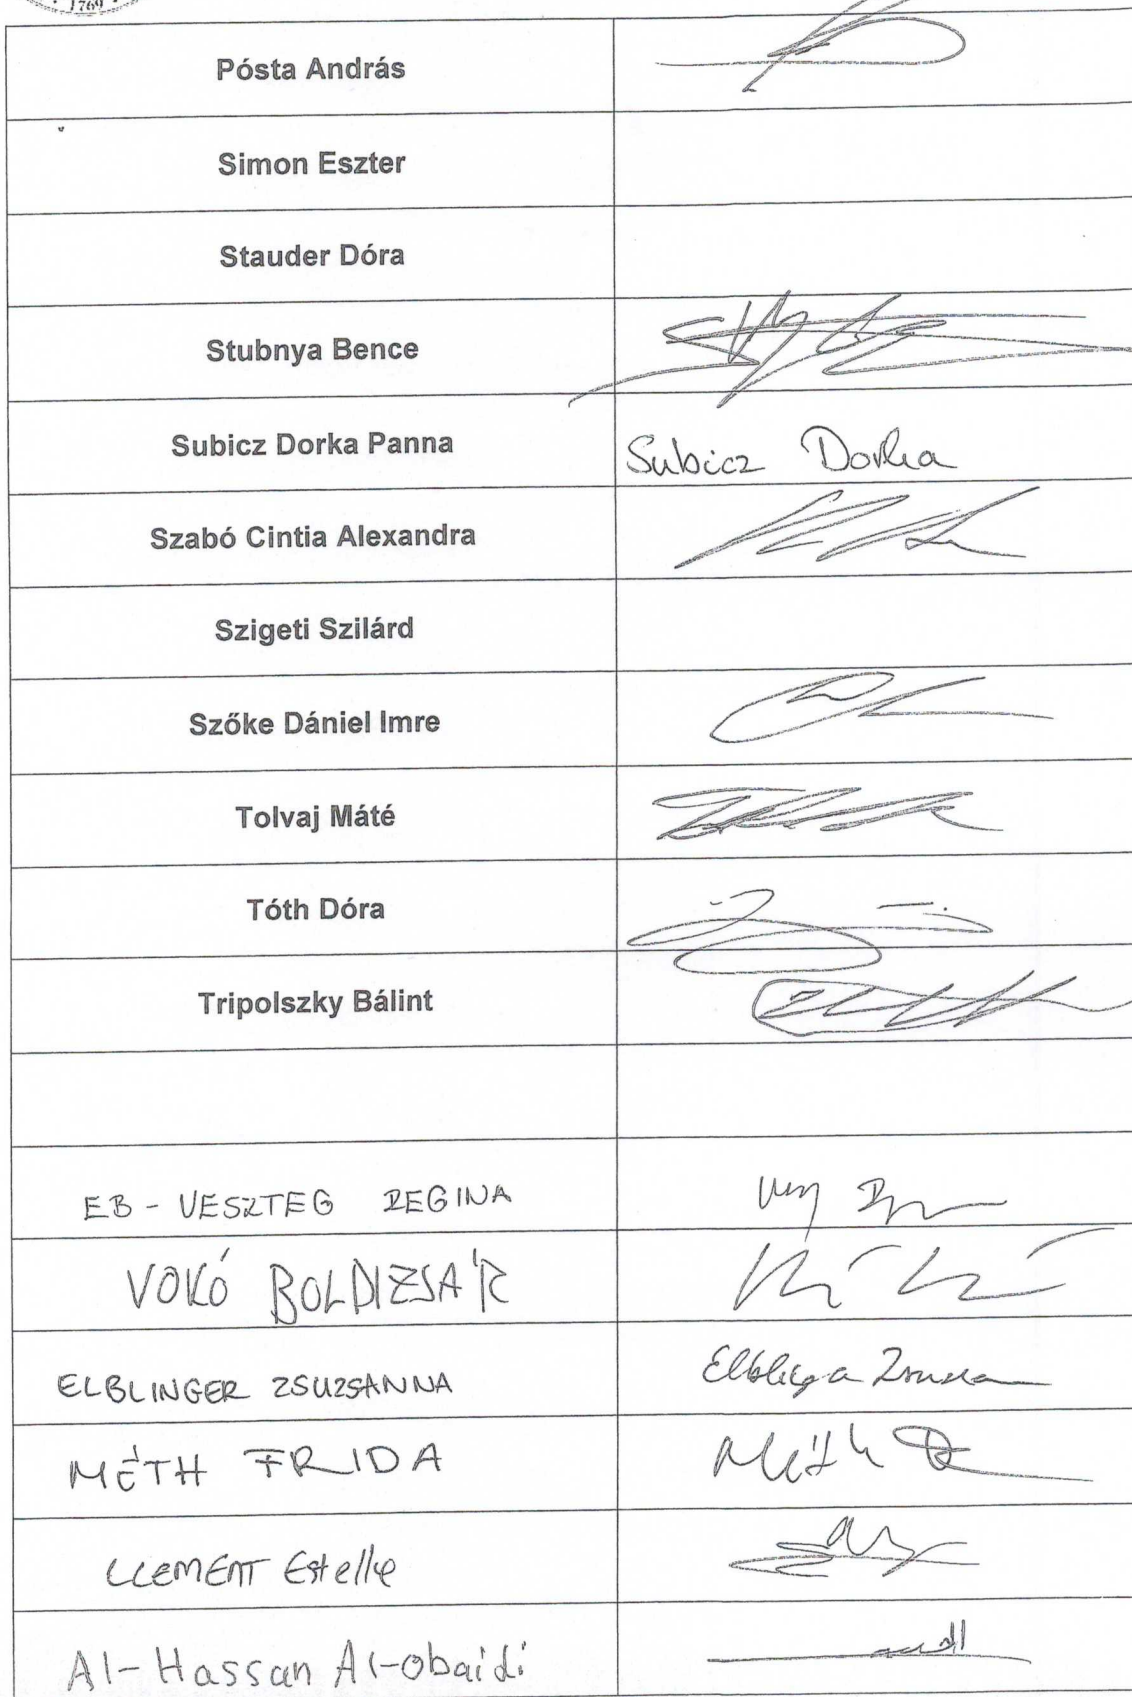 1769
Pósta András
Simon Eszter
Stauder Dóra
Stubnya Bence
Subicz Dorka Panna Subicz Dorka
Szabó Cintia Alexandra
Szigeti Szilárd
Szőke Dániel Imre
Tolvaj Máté
Tóth Dóra
Tripolszky Bálint
EB - VESZTEG REGINA
VOKÓ BOLDIZSÁR
ELBLINGER ZSUZSANNA
MÉTH FRIDA
CLEMENT Estelle
Al-Hassan Al-obaidi